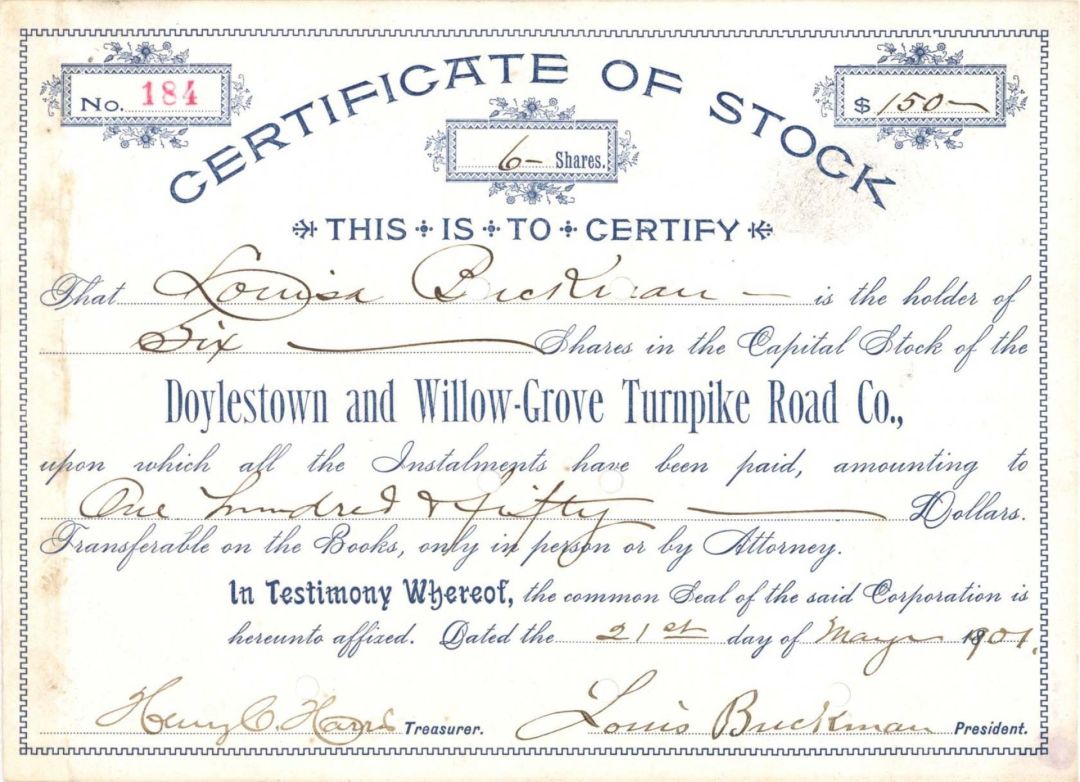 No. 184
$ 150—
CERTIFICATE OF STOCK
6— Shares.
THIS IS TO CERTIFY
That Louisa Buckman — is the holder of
Six — Shares in the Capital Stock of the
Doylestown and Willow-Grove Turnpike Road Co.,
upon which all the Instalments have been paid, amounting to
One hundred & fifty — Dollars.
Transferable on the Books, only in person or by Attorney.
In Testimony Whereof, the common Seal of the said Corporation is
hereunto affixed. Dated the 21st day of May 1901.
Henry C. Harris Treasurer.
Louis Buckman President.